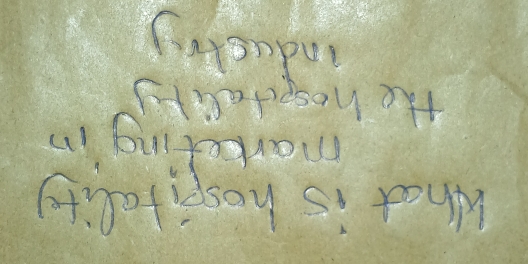 What is hospitality
marketing in
the hospitality
industry